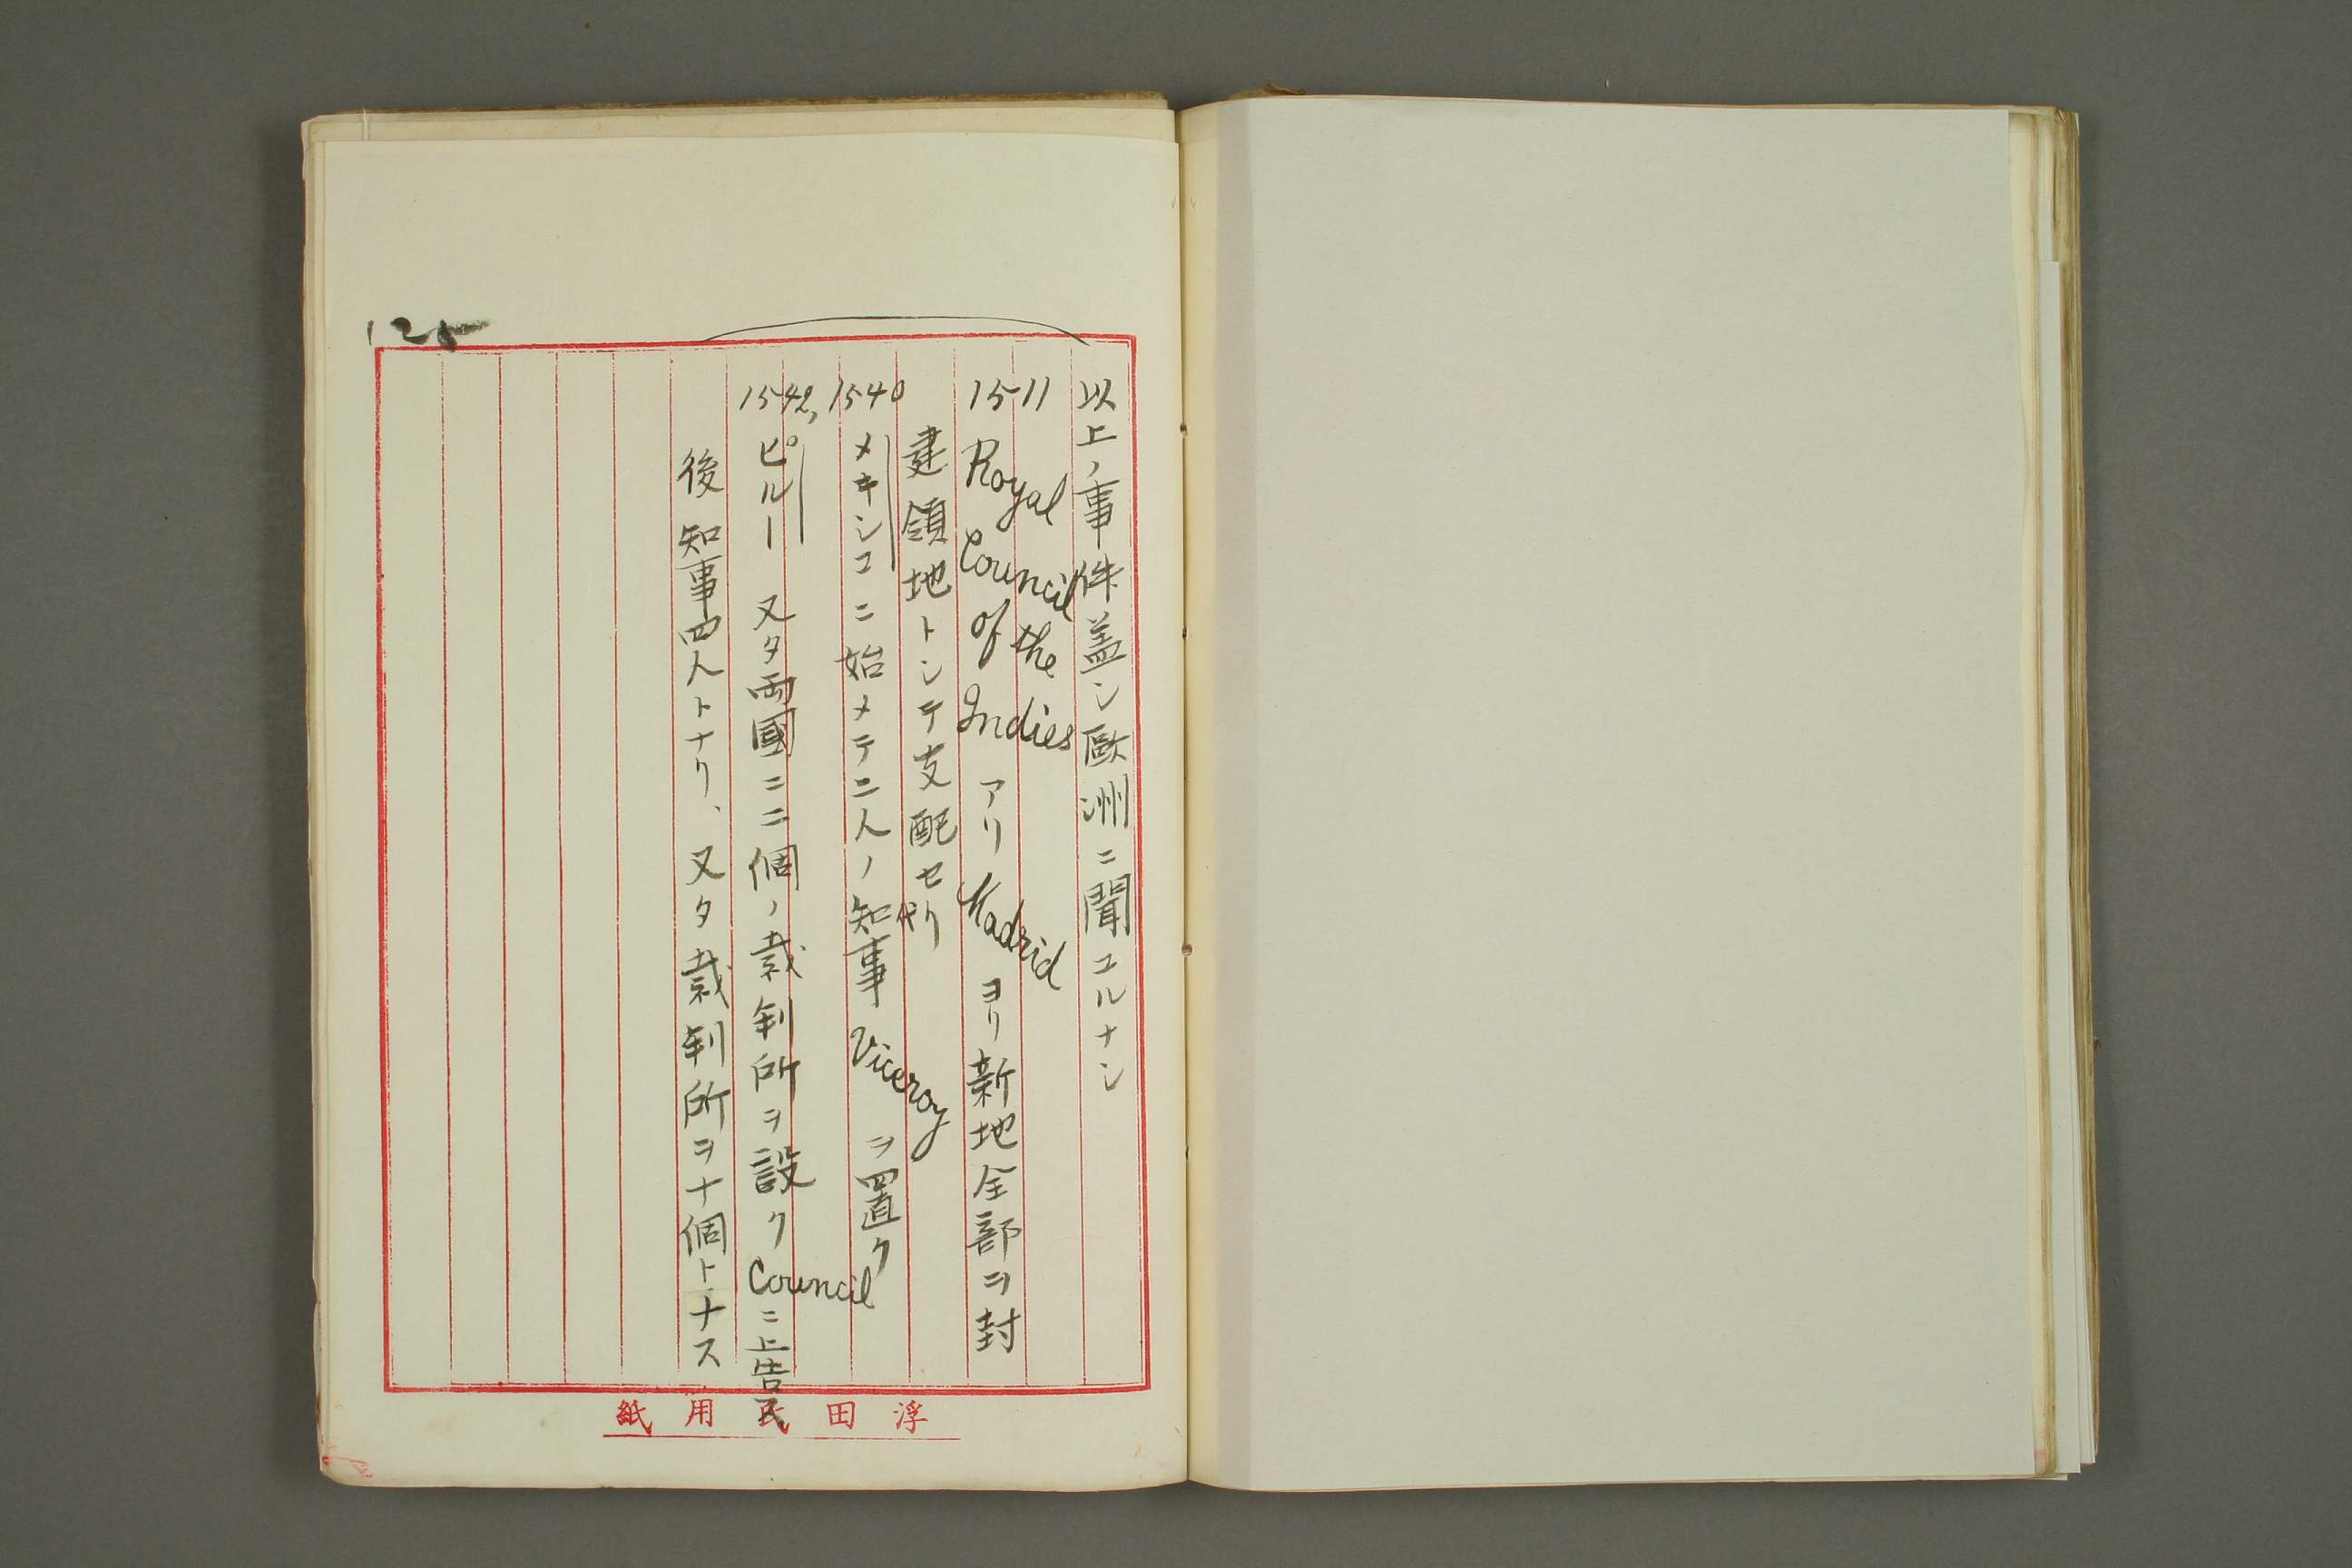 125
以上ノ事件蓋シ歐洲ニ聞ユルナシ
1511 Royal Council of the Indies アリ Madrid ヨリ新地全部ヲ封
建領地トシテ支配セリ
1540 メキシコニ始メテ二人ノ知事 Viceroy ヲ置ク
1542, ピルー 又タ両國ニ二個ノ裁判所ヲ設ク Council ニ上告ス
後知事四人トナリ、又タ裁判所ヲ十個トナス
浮田氏用紙